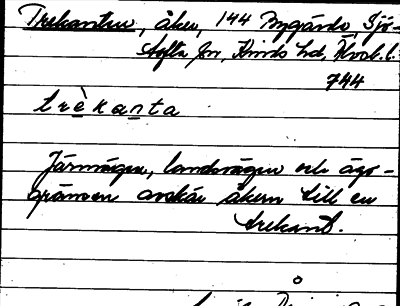 Trekanten, åker, 144 Bygärde, Sjö-
tofta sn, Kinds hd, Älvsb. l.
744
trèkanta
Järnvägen, landsvägen och ägo-
gränsen avskär åkern till en
trekant.